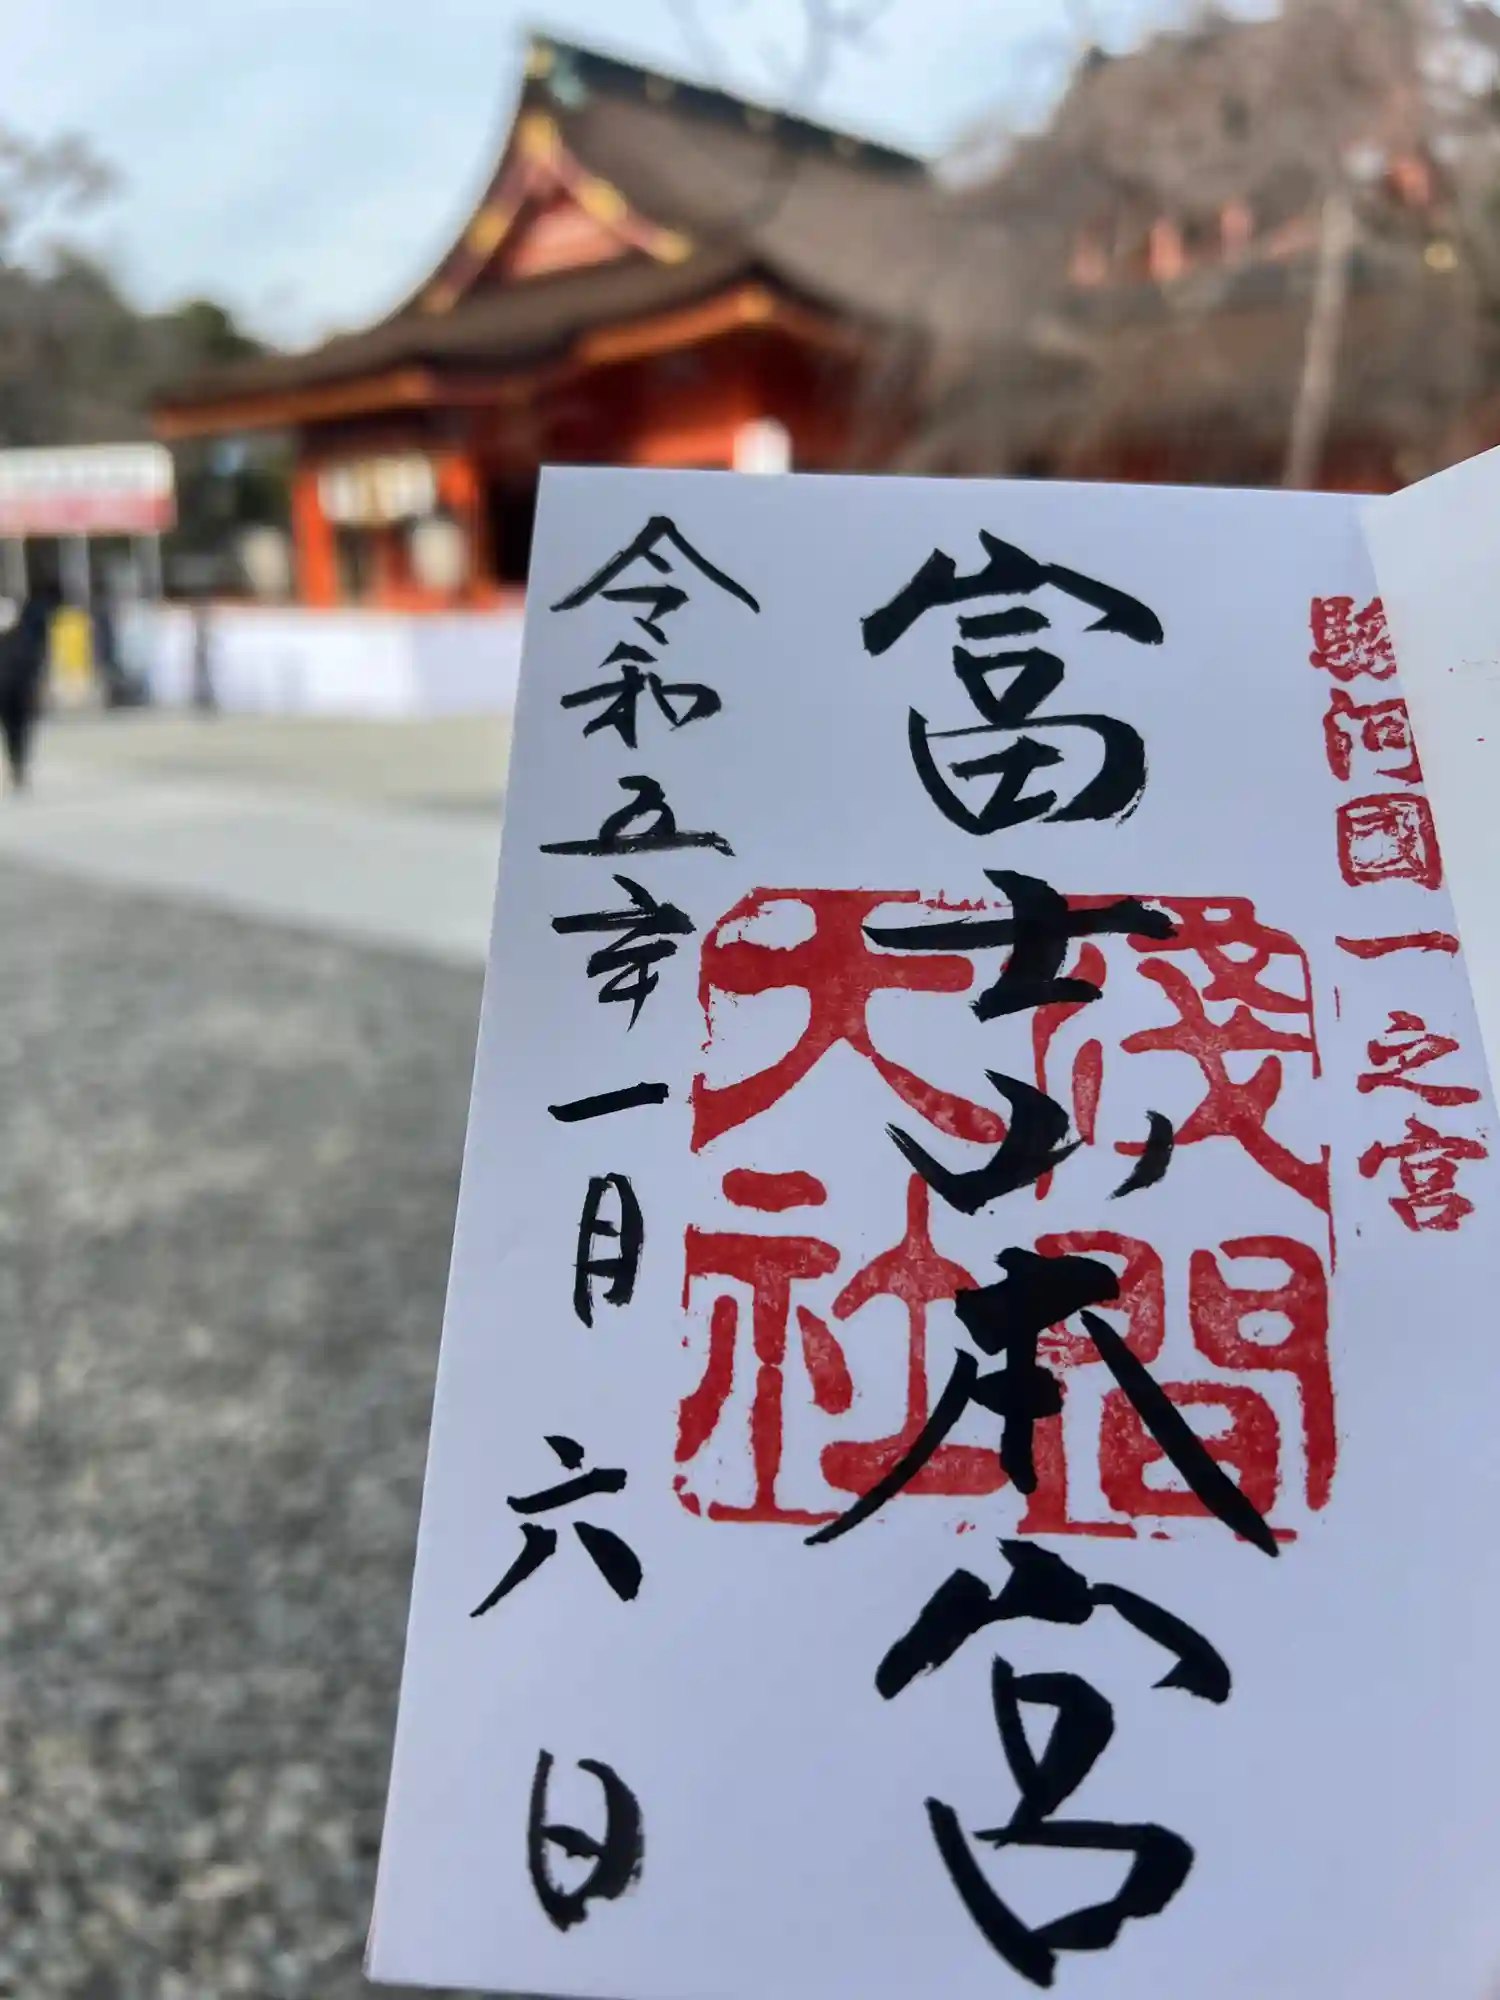 駿河國一之宮
富士山本宮
淺間
大社
令和五年一月六日